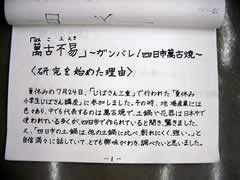 「萬古不易」 ～ガンバレ!四日市萬古焼～
〈研究を始めた理由〉
夏休みの7月24日、「じばさん三重」で行われた「夏休み
小学生じばさん講座」に参加しました。その時、地場産業には
色々あり、中でも代表するのは萬古焼で、土鍋や花器は日本中で
使われている多くが、四日市で作られていると聞き、驚きました。
又、「四日市の土鍋は、他の土鍋に比べ、割れにくく、強い。」と
自信満々に話していて、とても興味がわき、調べたいと思いました。
-1-